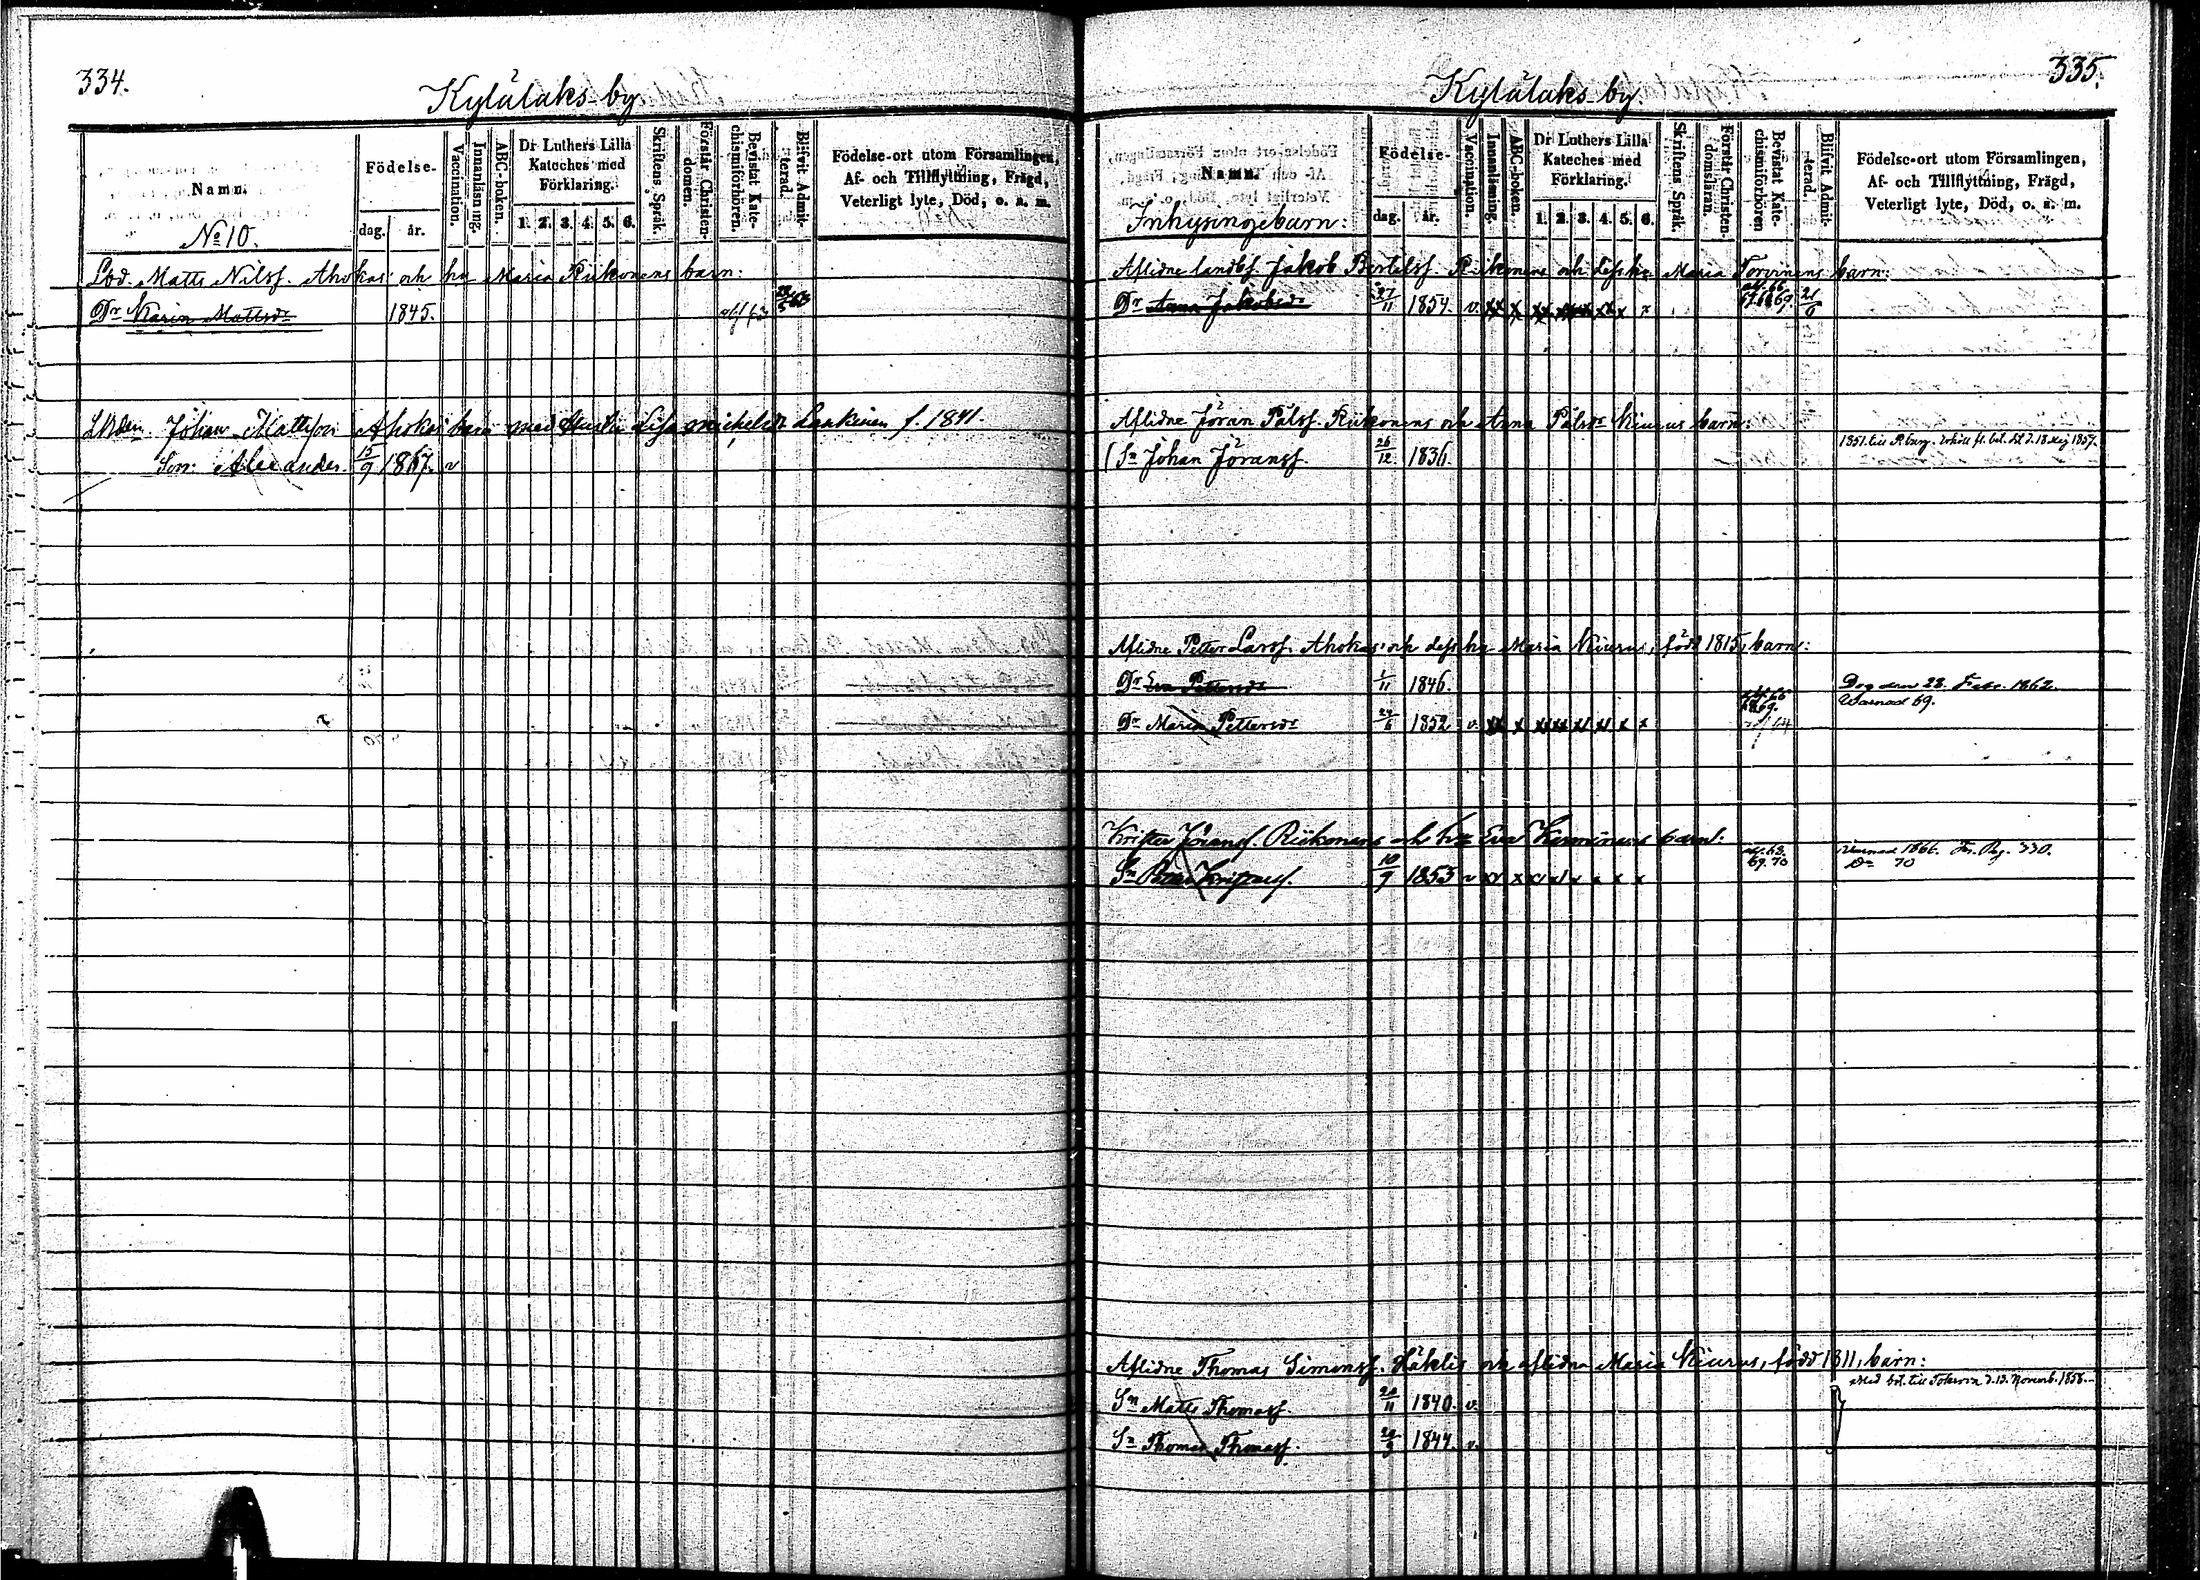 334.
Kyläläks by
Namn.
Födelse-
dag. år.
Vaccination.
Innanläsning.
ABC-boken.
Dr Luthers Lilla Kateches med Förklaring.
1. 2. 3. 4. 5. 6.
Skriftens Språk.
Förstår Christendomen.
Bevistat Katechismiförhören.
Blifvit Admitterad.
Födelse-ort utom Församlingen, Af- och Tillflyttning, Frägd, Veterligt lyte, Död, o. a. m.
No 10.
Lod. Matts Nilsf. Ahokas och hu Maria Riikonens barn:
Dr Karin Mattsdr 1845. 63
Johan Mattsson Ahokas barn med Hustru Lisa Michelsdr Laakinen f. 1841.
Son: Alexander. 15/9 1867. v
335.
Kyläläks by.
Namn.
Födelse-
dag. år.
Vaccination.
Innanläsning.
ABC-boken.
Dr Luthers Lilla Kateches med Förklaring.
1. 2. 3. 4. 5. 6.
Skriftens Språk.
Förstår Christendomsläran.
Bevistat Katechismiförhören
Blifvit Admitterad.
Födelse-ort utom Församlingen, Af- och Tillflyttning, Frägd, Veterligt lyte, Död, o. a. m.
Inhysingebarn:
Aflidne landbf. Jakob Bertilsf. Riikonens och dess hu Maria Torvinens barn:
Dr Anna Jakobsdr 27/11 1854. v. xx x xx xx xx xx x x 21/6
Aflidne Jöran Pålsf. Riikonens och Anna Pålsdr Kiurus barn:
Sn Johan Jöransf. 26/12. 1836. 1851. till P.burg. d. 18 Maj 1857.
Aflidne Petter Larsf. Ahokas och dess hu Maria Kiurus, född 1815, barn:
Dr Eva Pettersdr 1/11 1846. Dog den 28. Febr. 1862.
Dr Maria Pettersdr 24/6 1852 v. xx x xx xx xx xx x x 69. Warnad 69.
Krister Jöransf. Riikonens och hu Eva barn:
Sn Kristersf. 10/9 1853 v x x x x x x x x 69. 70 Warnad 1866. Fr. Pag. 330.
Do 70
Aflidne Thomas Simonsf. Häklis och aflidna Maria Kiurus, född 1811, barn:
Med bet. till Toksova d. 13. Novemb. 1858.
Sn Matts Thomasf. 20/11 1840. v.
Sn Thomas Thomasf. 29/9 1844. v.